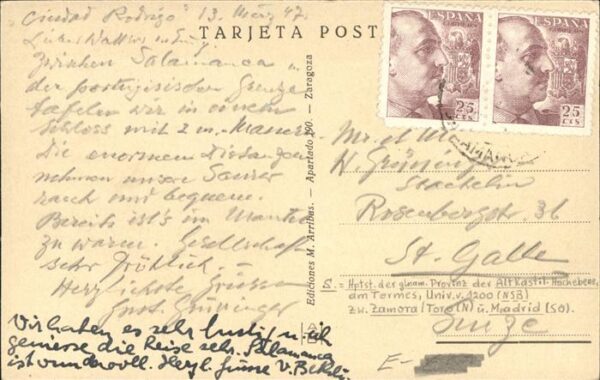 "Ciudad Rodrigo" 13. März 47.
TARJETA POST
zwischen Salamanca u.
der portugisischen Grenze
tafeln wir in einem
Schloss mit 2 m. Mauern.
Die enormen Distanzen
nehmen unsere Saurer
rasch und bequem.
Bereits ist's im Mantel
zu warm. Gesellschaft
sehr fröhlich –
Herzlichste Grüsse
Gust. Grüninger
Wir haben es sehr lustig u. ich
geniesse die Reise sehr. Salamanca
ist wundervoll. Herzl. Grüsse v.
Ediciones M. Arribas. — Apartado 190. — Zaragoza
ESPAÑA
CORREOS
25
CTS
ESPAÑA
CORREOS
25
CTS
SALAMANCA
Mr. et Mme
Staehelin
Rosenbergstr. 36
St. Gallen
S. = Hptst. der gleinam. Provinz der Altkastil. Hochebene,
am Tormes, Univ. v. 1200 (NSB)
zw. Zamora / Toro (N) u. Madrid (SO).
Suisse
E-